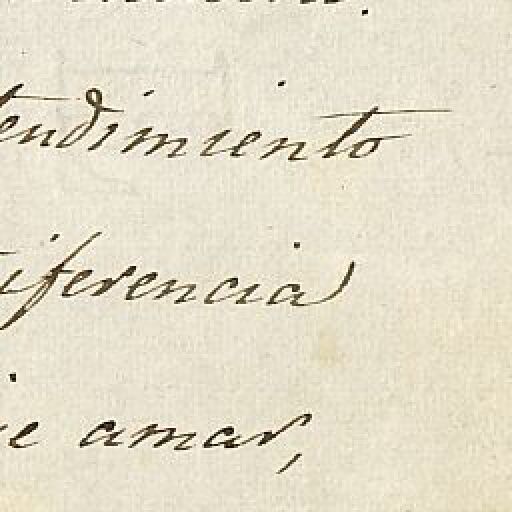 tendimiento
iferencia
e amar,